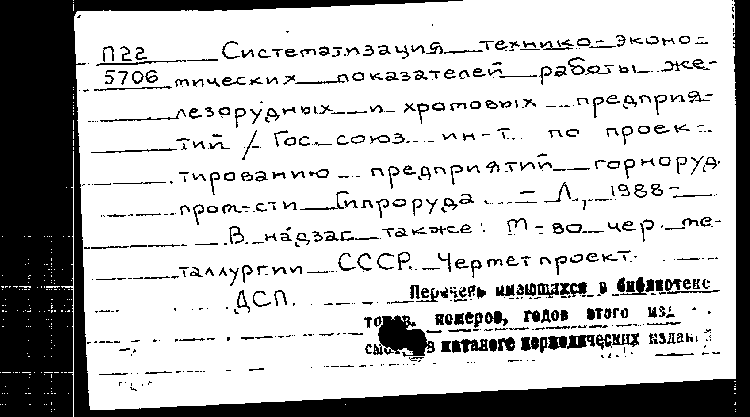 П22 Систематизация технико-эконо-
5706 мических показателей работы же-
лезорудных и хромовых предприя-
тий / Гос. союз. ин-т по проек-
тированию предприятий горноруд.
пром-сти Гипроруда. - Л., 1988-
В надзаг. также: М-во чер. ме-
таллургии СССР. Черметпроект.
ДСП. Перечень имеющихся в библиотеке
номеров, годов этого изд
в каталоге периодических издан